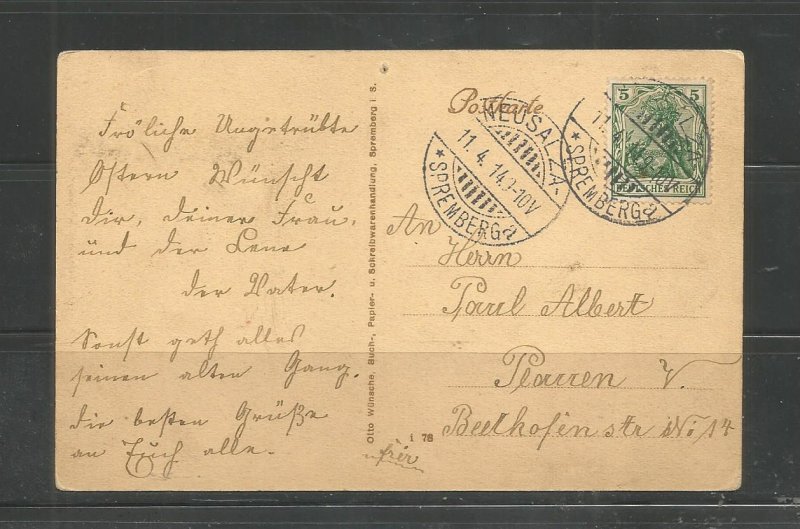 Fröliche Ungetrübte
Ostern Wünscht
dir, deiner Frau,
und der Lene
der Vater.
Sonst geth alles
seinen alten Gang.
die besten Grüße
an Euch alle.
Otto Wünsche, Buch-, Papier- u. Schreibwarenhandlung, Spremberg i S.
i 78
Postkarte
NEUSALZA-
11.4.14.9-10V
* SPREMBERG a
11.4.14.9-10V
* SPREMBERG a
5 5
DEUTSCHES REICH
An
Herrn
Paul Albert
Plauen V.
Beethofenstr No 14